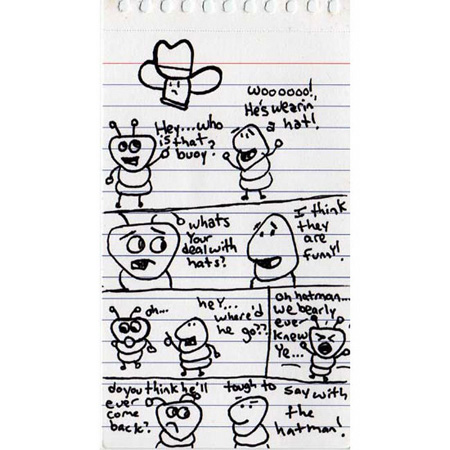 Woooooo!
He's wearin'
a hat!
Hey...who
is that?
buoy.
whats
Your
deal with
hats?
I think
they
are
funny!
oh...
hey...
where'd
he go??
oh hatman...
we bearly
ever
knew
Ye...
do you think he'll
ever
come
back?
tough to say with
the
hatman!